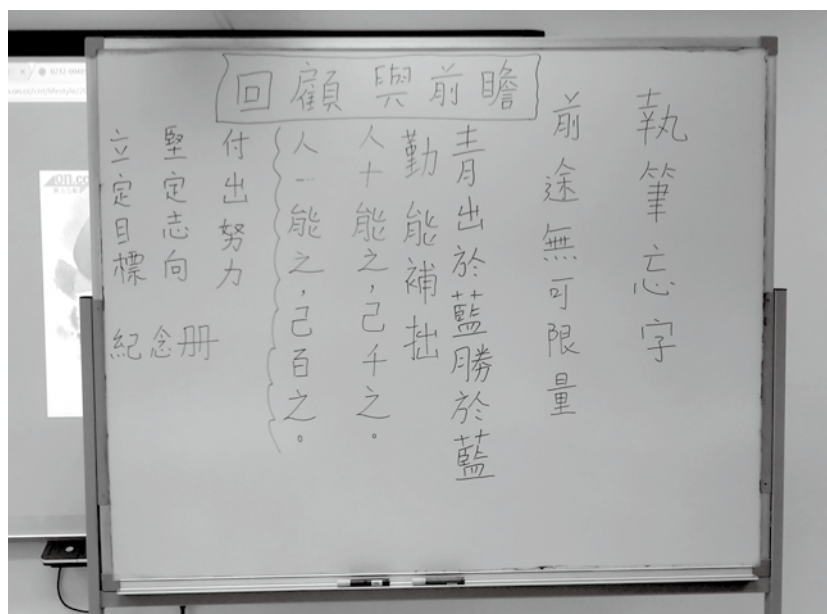 回顧與前瞻
執筆忘字
前途無可限量
青出於藍勝於藍
勤能補拙
人十能之，己千之。
人一能之，己百之。
付出努力
堅定志向
立定目標
紀念册
on.cc